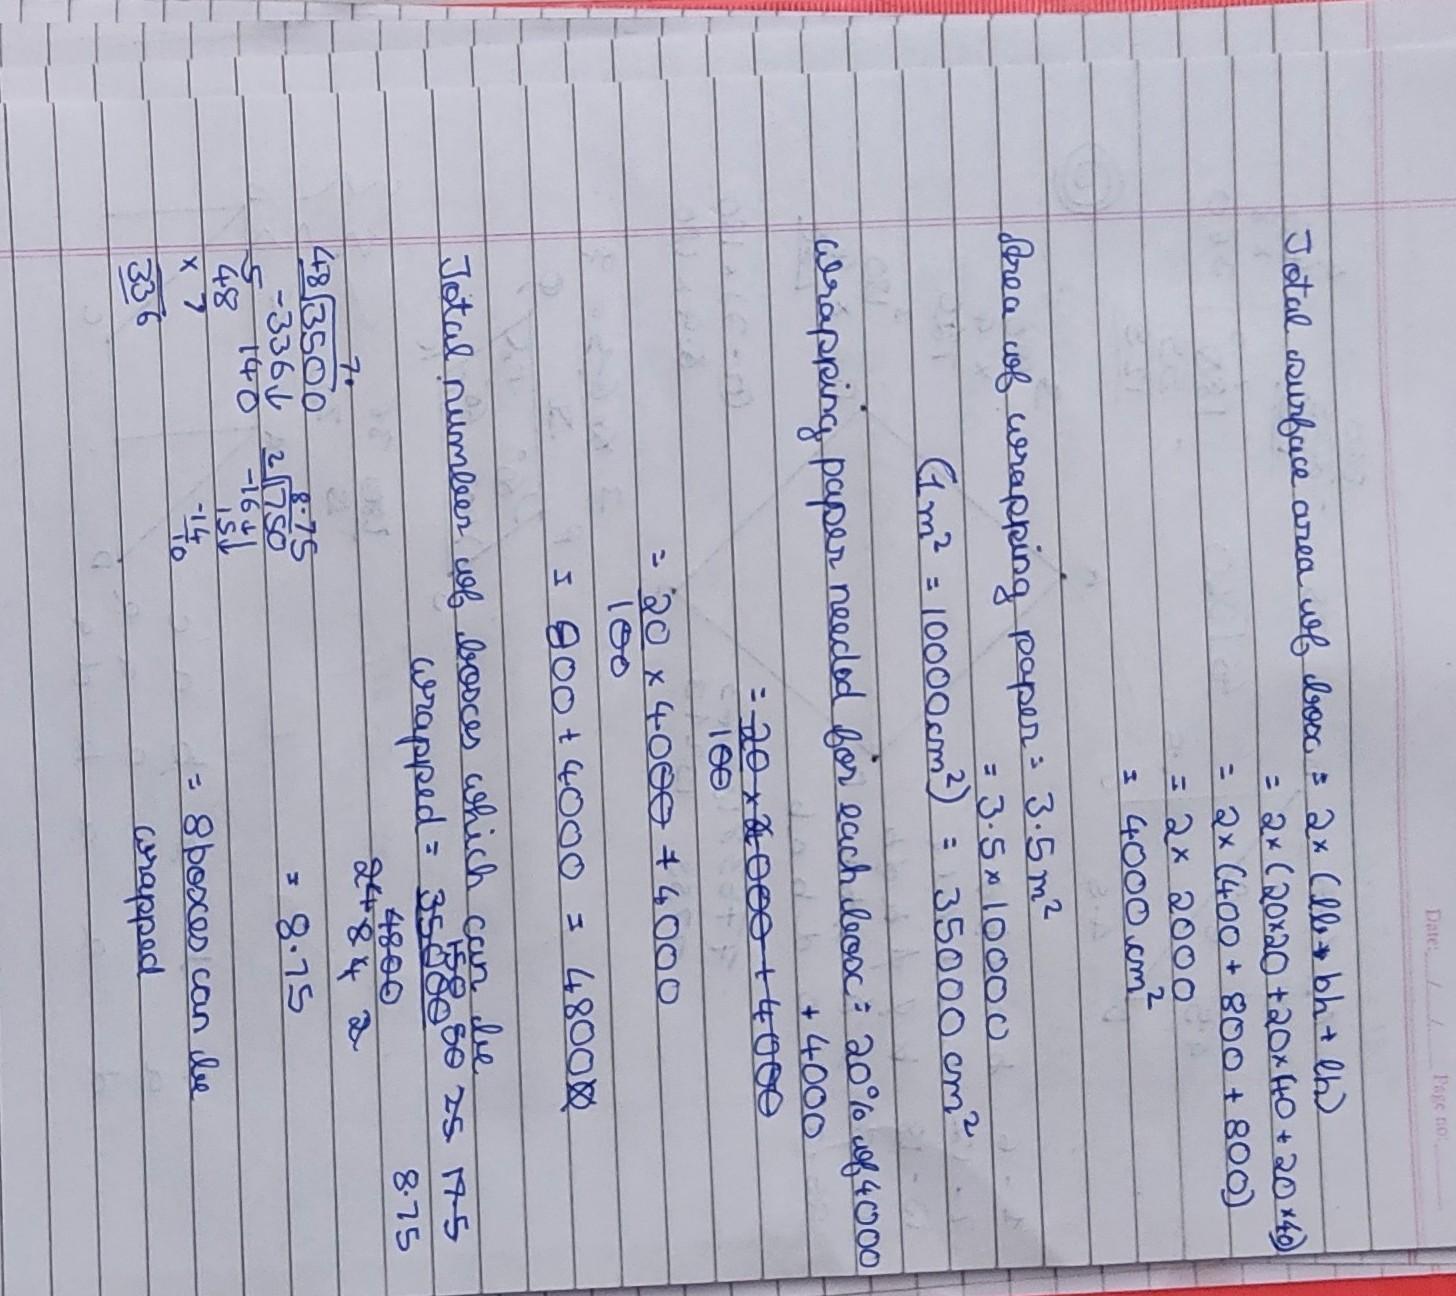 Date: / / Page no:
Total surface area of box = 2 × (lb + bh + lh)
= 2 × (20×20 + 20×40 + 20×40)
= 2 × (400 + 800 + 800)
= 2 × 2000
= 4000 cm²
Area of wrapping paper = 3.5 m²
= 3.5 × 10000
(1 m² = 10000 cm²) = 35000 cm²
Wrapping paper needed for each box = 20% of 4000
+ 4000
= 20 × 4000 + 4000
100
= 20 × 4000 + 4000
100
= 800 + 4000 = 4800
Total number of boxes which can be
wrapped = 35000
4800
150 50 25 17.5
8.75
24 8 4 2
48 3500 7.
-336↓
140
= 8.75
2 750 8.75
-16↓↓
15↓
-14
10
5
48
× 7
336
= 8 boxes can be
wrapped